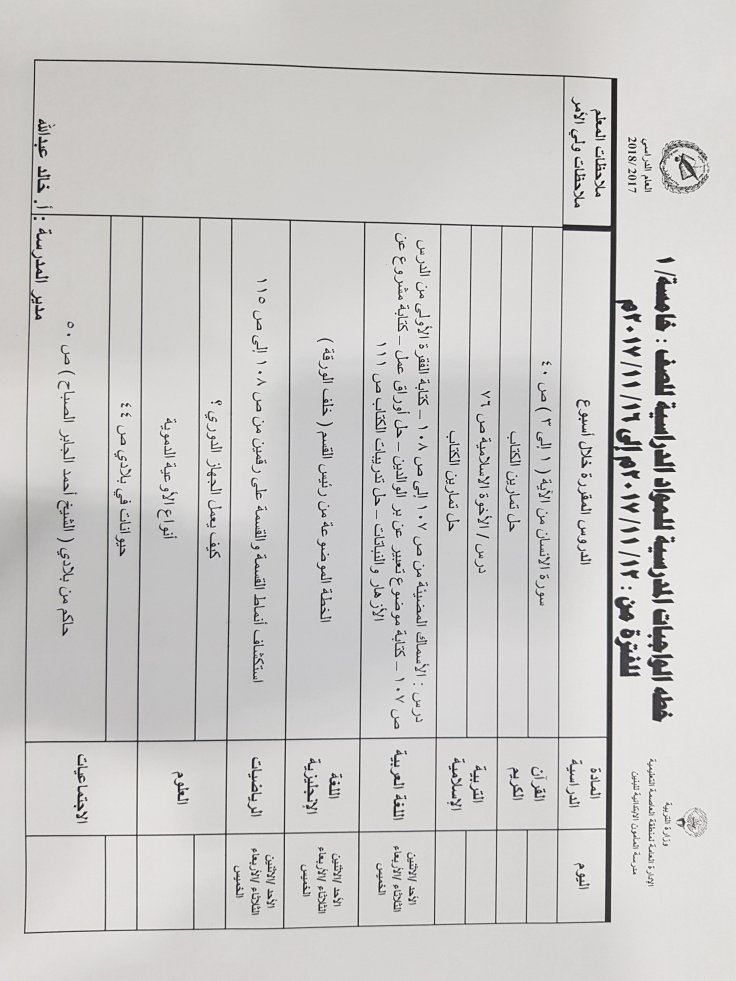 وزارة التربية
الادارة العامة لمنطقة العاصمة التعليمية
مدرسة المأمون الابتدائية للبنين
العام الدراسي
2018/ 2017
خطه الواجبات المدرسية للمواد الدراسية للصف : خامسة/ ١
للفترة من : ١٢/ ١١/ ٢٠١٧م إلى ١٦/ ١١/ ٢٠١٧م
اليوم
المادة الدراسية
الدروس المقررة خلال أسبوع
ملاحظات المعلم
ملاحظات ولي الأمر
القرآن الكريم
سورة الانسان من الآية ( ١ إلى ٣ ) ص ٤٠
حل تمارين الكتاب
التربية الإسلامية
درس / الأخوة الاسلامية ص ٧٦
حل تمارين الكتاب
الأحد /الاثنين
الثلاثاء /الأربعاء
الخميس
اللغة العربية
درس : الأسماك المضيئة من ص ١٠٧ إلى ص ١٠٨ – كتابة الفقرة الأولى من الدرس
ص ١٠٧ – كتابة موضوع تعبير عن بر الوالدين – حل أوراق عمل – كتابة مشروع عن
الأزهار والنباتات – حل تدريبات الكتاب ص ١١١
الأحد /الاثنين
الثلاثاء /الأربعاء
الخميس
اللغة الإنجليزية
الخطة الموضوعة من رئيس القسم ( خلف الورقة )
الأحد /الاثنين
الثلاثاء /الأربعاء
الخميس
الرياضيات
استكشاف أنماط القسمة والقسمة على رقمين من ص ١٠٨ إلى ص ١١٥
العلوم
كيف يعمل الجهاز الدوري ؟
أنواع الأوعية الدموية
الاجتماعيات
حيوانات في بلادي ص ٤٤
حاكم من بلادي ( الشيخ أحمد الجابر الصباح ) ص ٥٠
مدير المدرسة : أ. خالد عبدالله